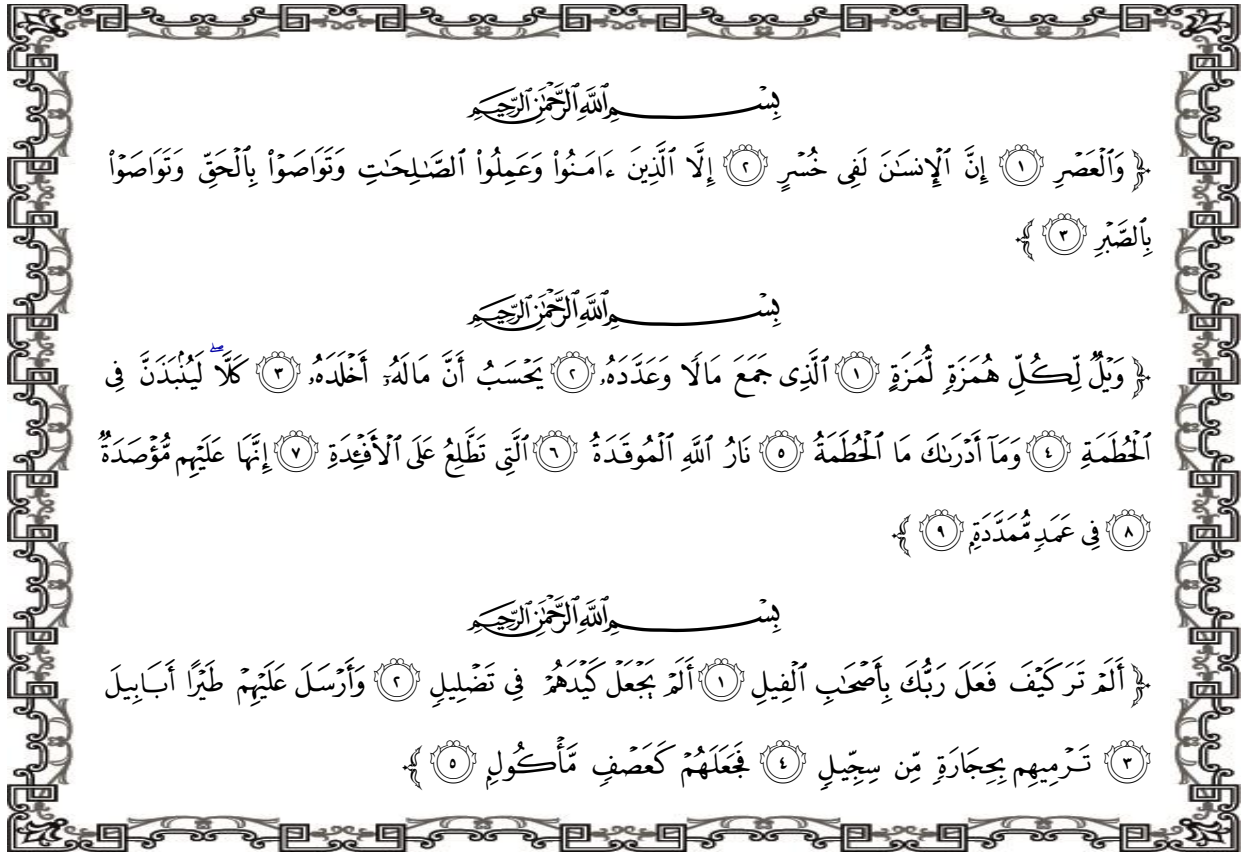 بِسۡمِ ٱللَّهِ ٱلرَّحۡمَٰنِ ٱلرَّحِيمِ
﴿ وَٱلۡعَصۡرِ ١ إِنَّ ٱلۡإِنسَٰنَ لَفِى خُسۡرٍ ٢ إِلَّا ٱلَّذِينَ ءَامَنُواْ وَعَمِلُواْ ٱلصَّٰلِحَٰتِ وَتَوَاصَوۡاْ بِٱلۡحَقِّ وَتَوَاصَوۡاْ
بِٱلصَّبۡرِ ٣ ﴾
بِسۡمِ ٱللَّهِ ٱلرَّحۡمَٰنِ ٱلرَّحِيمِ
﴿ وَيۡلٌ لِّكُلِّ هُمَزَةٍ لُّمَزَةٍ ١ ٱلَّذِى جَمَعَ مَالًا وَعَدَّدَهُۥ ٢ يَحۡسَبُ أَنَّ مَالَهُۥٓ أَخۡلَدَهُۥ ٣ كَلَّاۖ لَيُنۢبَذَنَّ فِى
ٱلۡحُطَمَةِ ٤ وَمَآ أَدۡرَىٰكَ مَا ٱلۡحُطَمَةُ ٥ نَارُ ٱللَّهِ ٱلۡمُوقَدَةُ ٦ ٱلَّتِى تَطَّلِعُ عَلَى ٱلۡأَفۡـِٔدَةِ ٧ إِنَّهَا عَلَيۡهِم مُّؤۡصَدَةٌ
٨ فِى عَمَدٍ مُّمَدَّدَةِۭ ٩ ﴾
بِسۡمِ ٱللَّهِ ٱلرَّحۡمَٰنِ ٱلرَّحِيمِ
﴿ أَلَمۡ تَرَ كَيۡفَ فَعَلَ رَبُّكَ بِأَصۡحَٰبِ ٱلۡفِيلِ ١ أَلَمۡ يَجۡعَلۡ كَيۡدَهُمۡ فِى تَضۡلِيلٍ ٢ وَأَرۡسَلَ عَلَيۡهِمۡ طَيۡرًا أَبَابِيلَ
٣ تَرۡمِيهِم بِحِجَارَةٍ مِّن سِجِّيلٍ ٤ فَجَعَلَهُمۡ كَعَصۡفٍ مَّأۡكُولِۭ ٥ ﴾